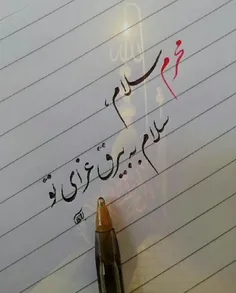 محرم سلام،
سلام به بیرق عزای تو